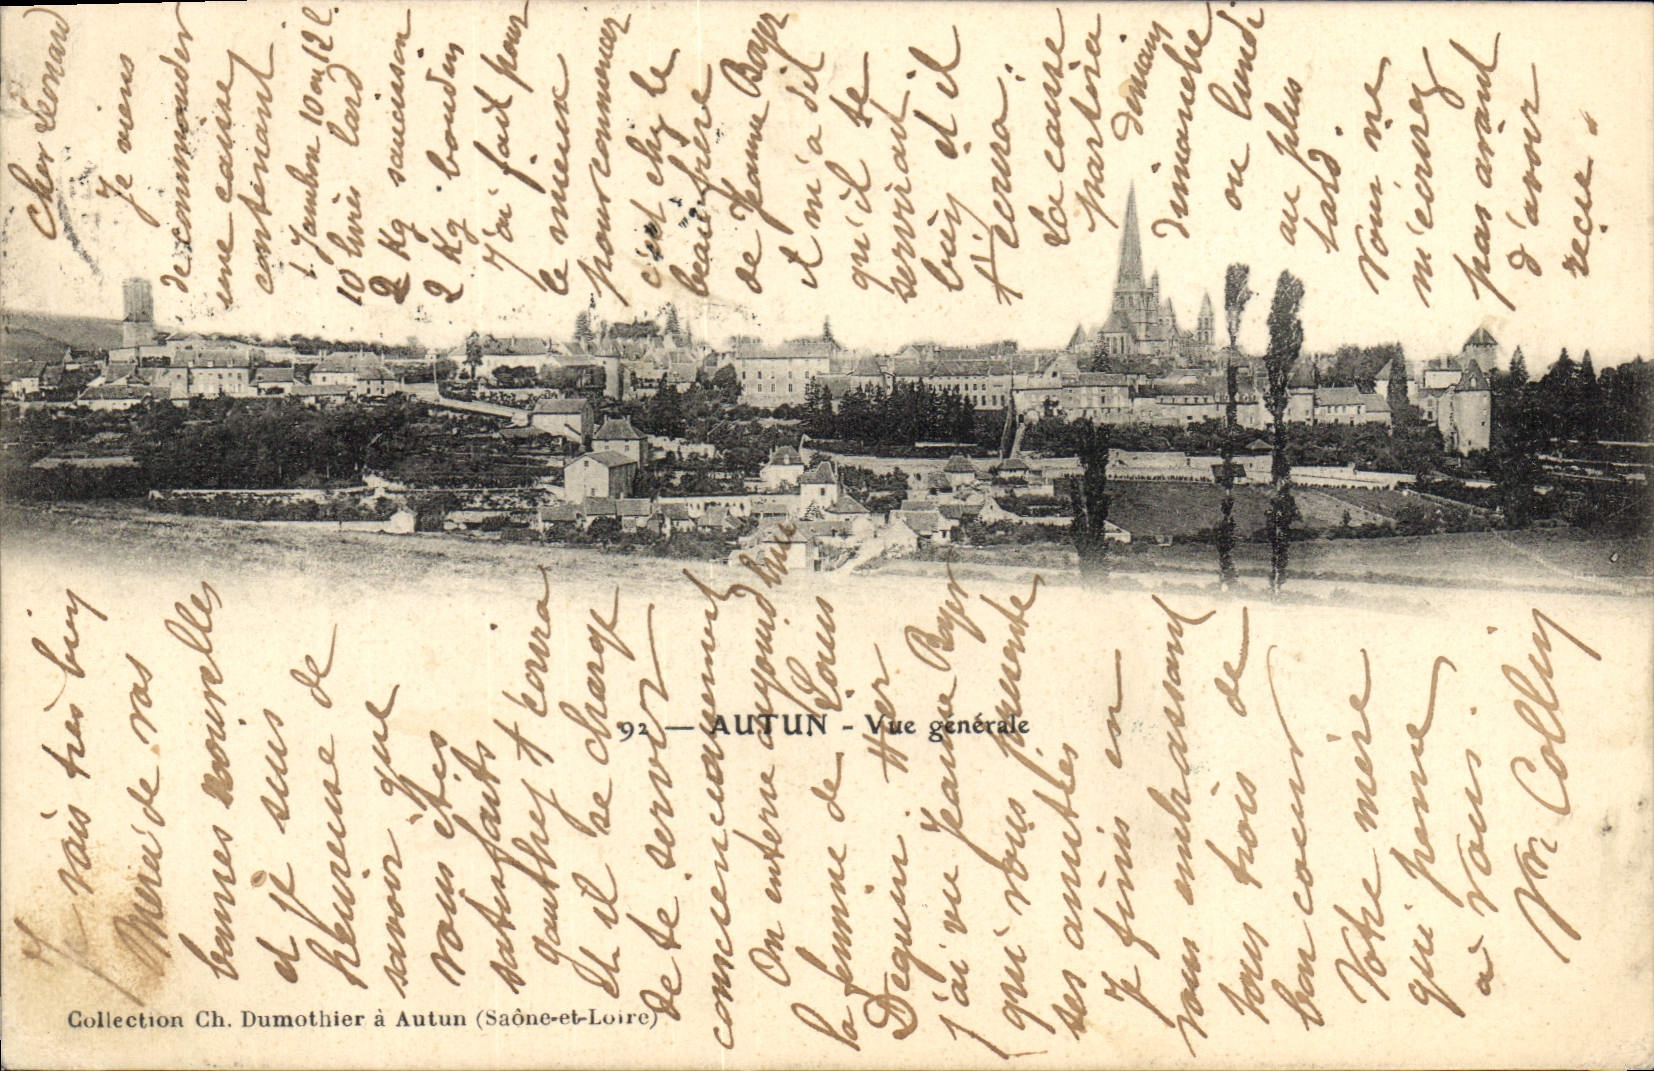 Cher Léonard
Je viens
de commander
une caisse
contenant
1 Jambon 10 ou 12 l.
10 livres lard
2 Kg saucisson
2 Kg boudin
J'ai fait pour
le mieux
pour commencer
c'est chez le
beau frère
de Jeanne Boyer
et m'a dit
qu'il te
servirait
bien et il
t'ecrira.
La caisse
partira demain
dimanche
ou lundi
au plus
tard.
Vous ne
m'écrirez
pas avant
d'avoir
reçue.
Je vais très bien
Merci de vos
bonnes nouvelles
et suis
heureuse de
savoir que
vous êtes
satisfaits
Gauthey t'ecrira
Et il se charge
de te servir
consciencieusement
On enterre aujourd'hui
la femme de Louis
Dequin. Hier
j'ai vu Jeanne Boyer
qui vous présente
ses amitiés
Je finis en
vous embrassant
tous trois de
bon coeur
Votre mère
qui pense
à vous.
Vve Colley
92 — AUTUN - Vue générale
Collection Ch. Dumothier à Autun (Saône-et-Loire)